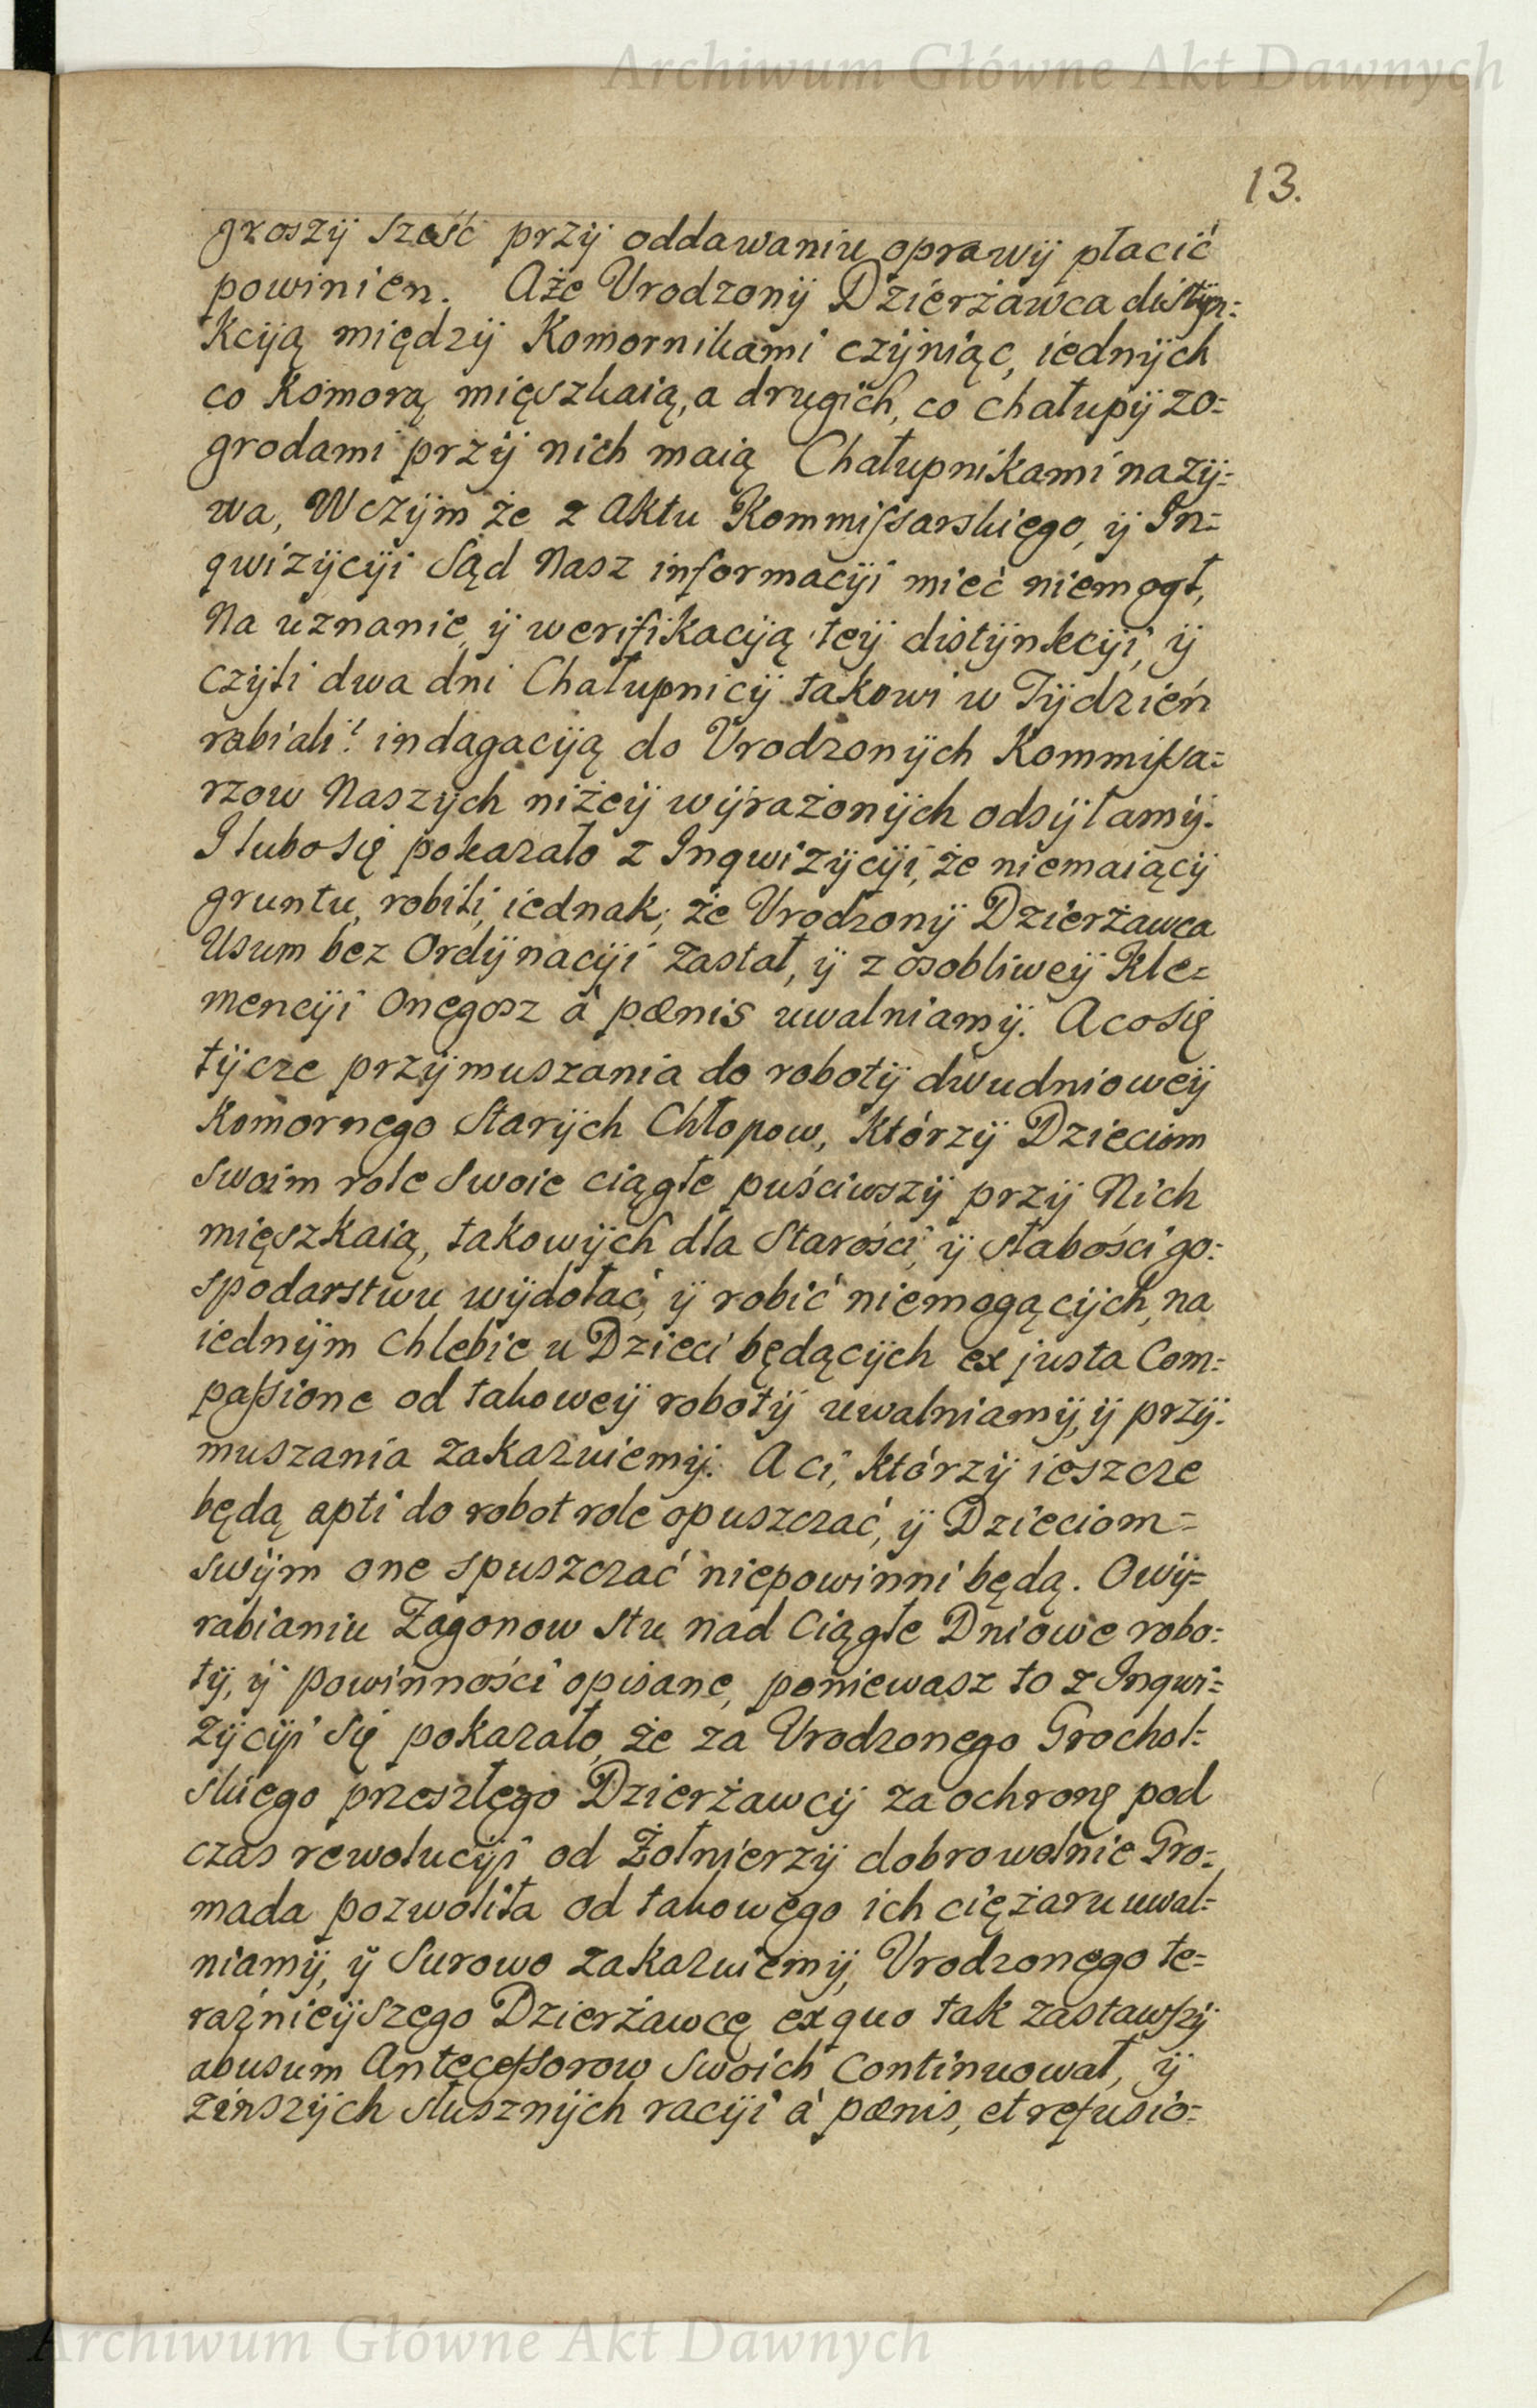 Archiwum Główne Akt Dawnych
13.
groszÿ szesć przÿ oddawaniu oprawÿ płacić
powinien. Aże Urodzonÿ Dzierżawca distÿn=
kcÿą międzÿ Komornikami czÿniąc, iednÿch
co Komorą mięszkaią, a drugich, co chałupÿ zo=
grodami przÿ nich maią Chałupnikami nazÿ=
wa, Wczÿm że z Aktu Kommissarskiego, ÿ In=
qwizÿcÿi Sąd Nasz informacÿi mieć niemogł,
Na uznanie, ÿ werifikacÿą teÿ distÿnkcÿi, ÿ
czÿli dwa dni Chałupnicÿ takowi w Tÿdzień
rabiali? indagacÿą do Urodzonÿch Kommissa=
rzow Naszÿch niżeÿ wÿrażonÿch odsÿłamÿ.
I lubosię pokazało z Inqwizÿcÿi, że niemaiącÿ
gruntu, robili, iednak, że Urodzonÿ Dzierżawca
Usum bez Ordÿnacÿi zastał, ÿ z osobliweÿ Kle=
mencÿi Onegosz à pænis uwalniamÿ. Acosię
tÿcze przÿmuszania do robotÿ dwudnioweÿ
Komornego Starÿch Chłopow, Którzÿ Dzieciom
Swoim role Swoie ciągłe puściwszÿ przÿ Nich
mięszkaią, takowÿch dla Starości, ÿ słabości go=
spodarstwu wÿdołać, ÿ robić niemogącÿch, na
iednÿm Chlebie u Dzieci będącÿch ex justa Com=
passione od takoweÿ robotÿ uwalniamÿ, ÿ przÿ=
muszania zakazuiemÿ. A ci, Którzÿ ieszcze
będą apti do robot role opuszczać, ÿ Dzieciom=
swÿm one spuszczać niepowinni będą. Owÿ=
rabianiu Zagonow stu nad Ciągłe Dniowe robo=
tÿ, ÿ powinności opisane, poniewasz to z Inqwi=
zÿcÿi Się pokazało, że za Urodzonego Grochol=
skiego przeszłego Dzierżawcÿ za ochronę pod
czas rewolucÿi od Żołnierzÿ dobrowolnie Gro=
mada pozwoliła od takowego ich ciężaru uwal=
niamÿ, ÿ Surowo zakazuiemÿ, Urodzonego te=
raźnieÿszego Dzierżawcę ex quo tak zastawszÿ
abusum Antecessorow Swoich Continuował, ÿ
zinszÿch słusznÿch racÿi à pænis, et refusio=
Archiwum Główne Akt Dawnych